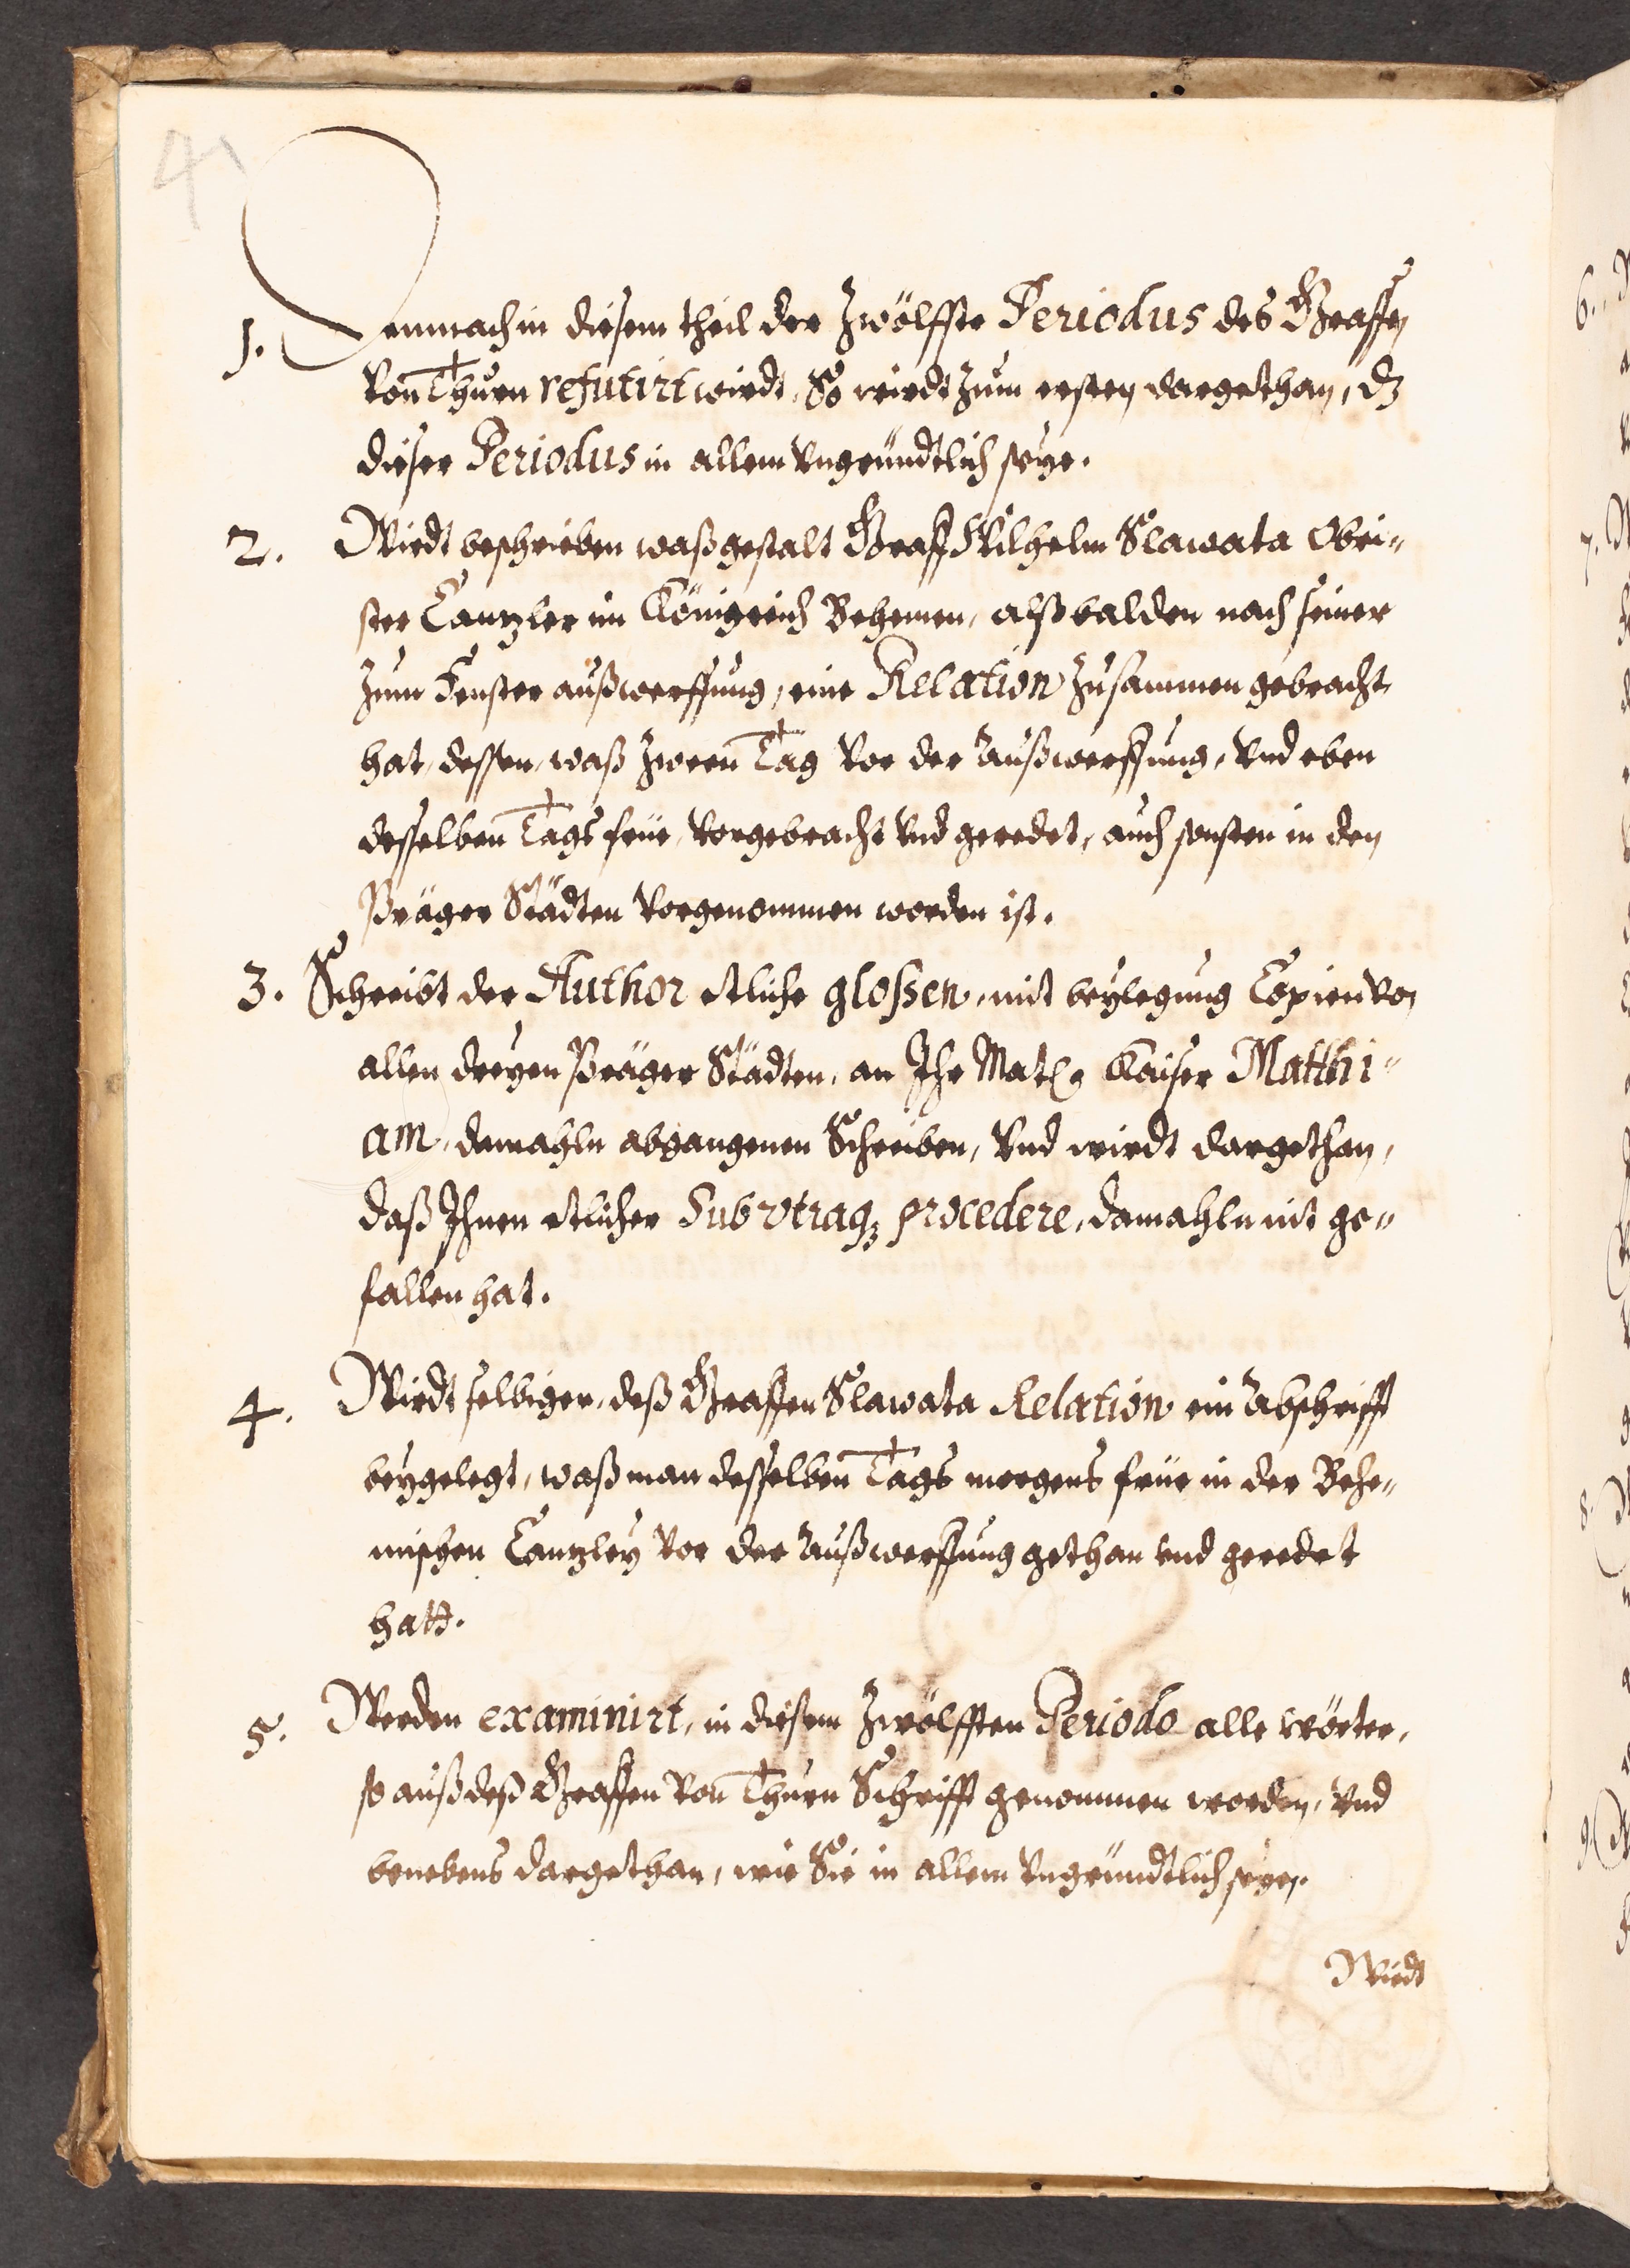 4
1. Demnach in diesem theil der Zwölffte Periodus des Graffen
von Thurn refutirt wirdt, So wirdt zum ersten dargethan, dz
dieser Periodus in allem vngründtlich seye.
2. Wirdt beschrieben waßgestalt Graff Wilhelm Slawata Obri-
ster Cantzler im Königreich Behemen, alßbalden nach seiner
zum Fenster außwerffung, eine Relation zusammen gebracht
hat, dessen, waß zween Tag vor der Außwerffung, vnd eben
desselben Tags früe, vorgebracht vnd geredet, auch sonsten in den
Präger Städten vorgenommen worden ist.
3. Schreibt der Author etliche glossen, mit beylegung Copien von
allen dreyen Präger Städten, an Ihr Matt. Kaiser Matthi-
am, damahln abgangenen Schreiben, vnd wirdt dargethan,
daß Ihnen etlicher Sub vtraq procedere, damahln nit ge-
fallen hat.
4. Wirdt selbiger, deß Graffen Slawata Relation ein Abschrifft
beygelegt, waß man desselben Tags morgens früe in der Behe-
mischen Cantzley vor der Außwerffung gethan vnd geredet
hatt.
5. Werden examinirt, in diesem Zwölfften Periodo alle wörter,
so auß deß Graffen von Thurn Schrifft genommen worden, vnd
benebens dargethan, wie Sie in allem vngründtlich seyen.
Wirdt
6.
7.
8.
9.